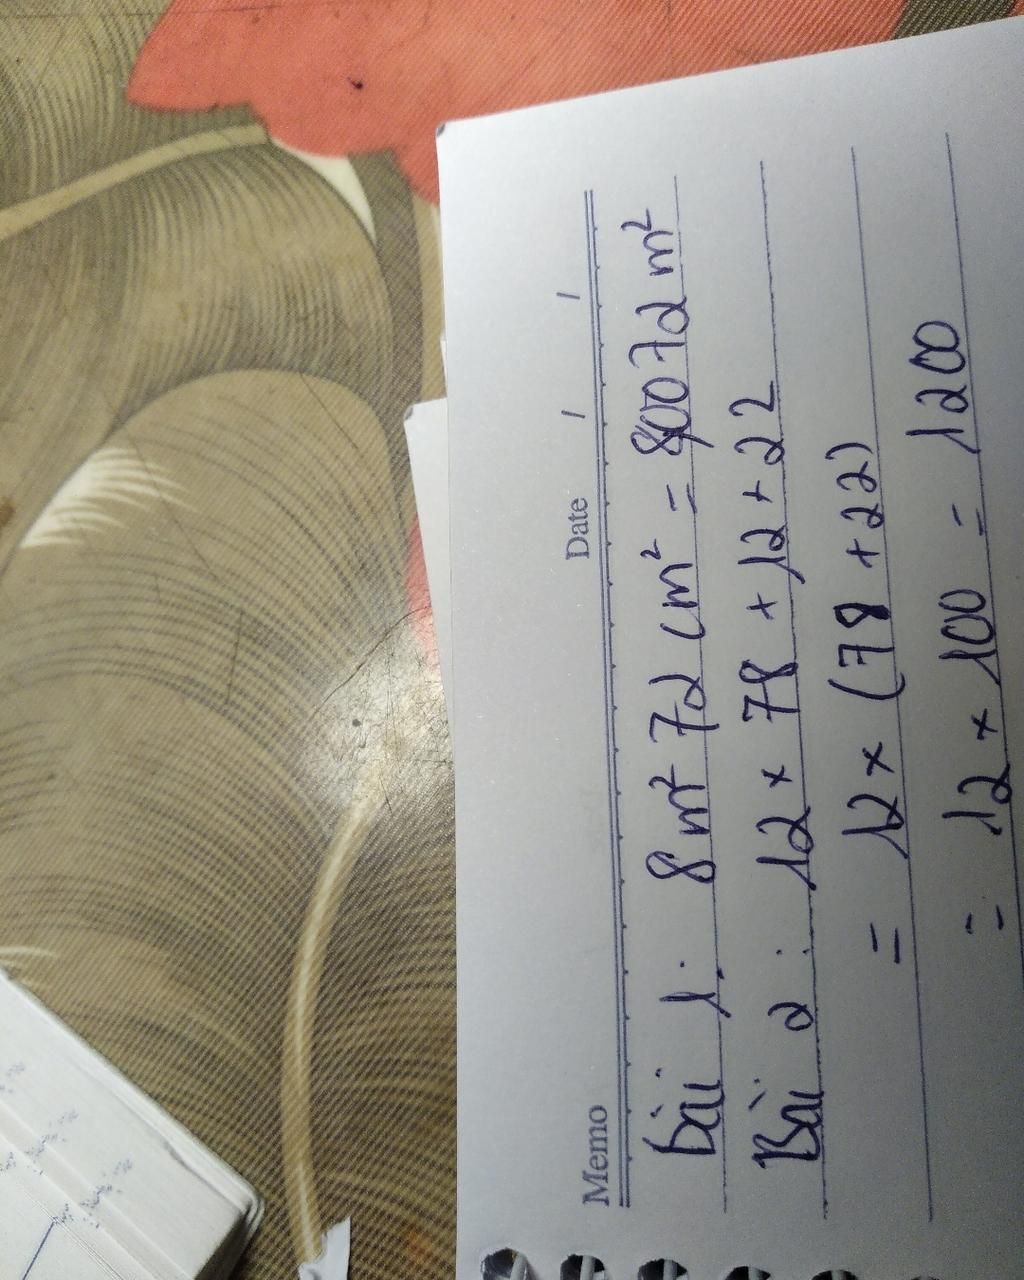 Memo Date / /
Bài 1: 8m² 72 cm² = 80072 m²
Bài 2: 12 x 78 + 12 + 22
= 12 x (78 + 22)
= 12 x 100 = 1200